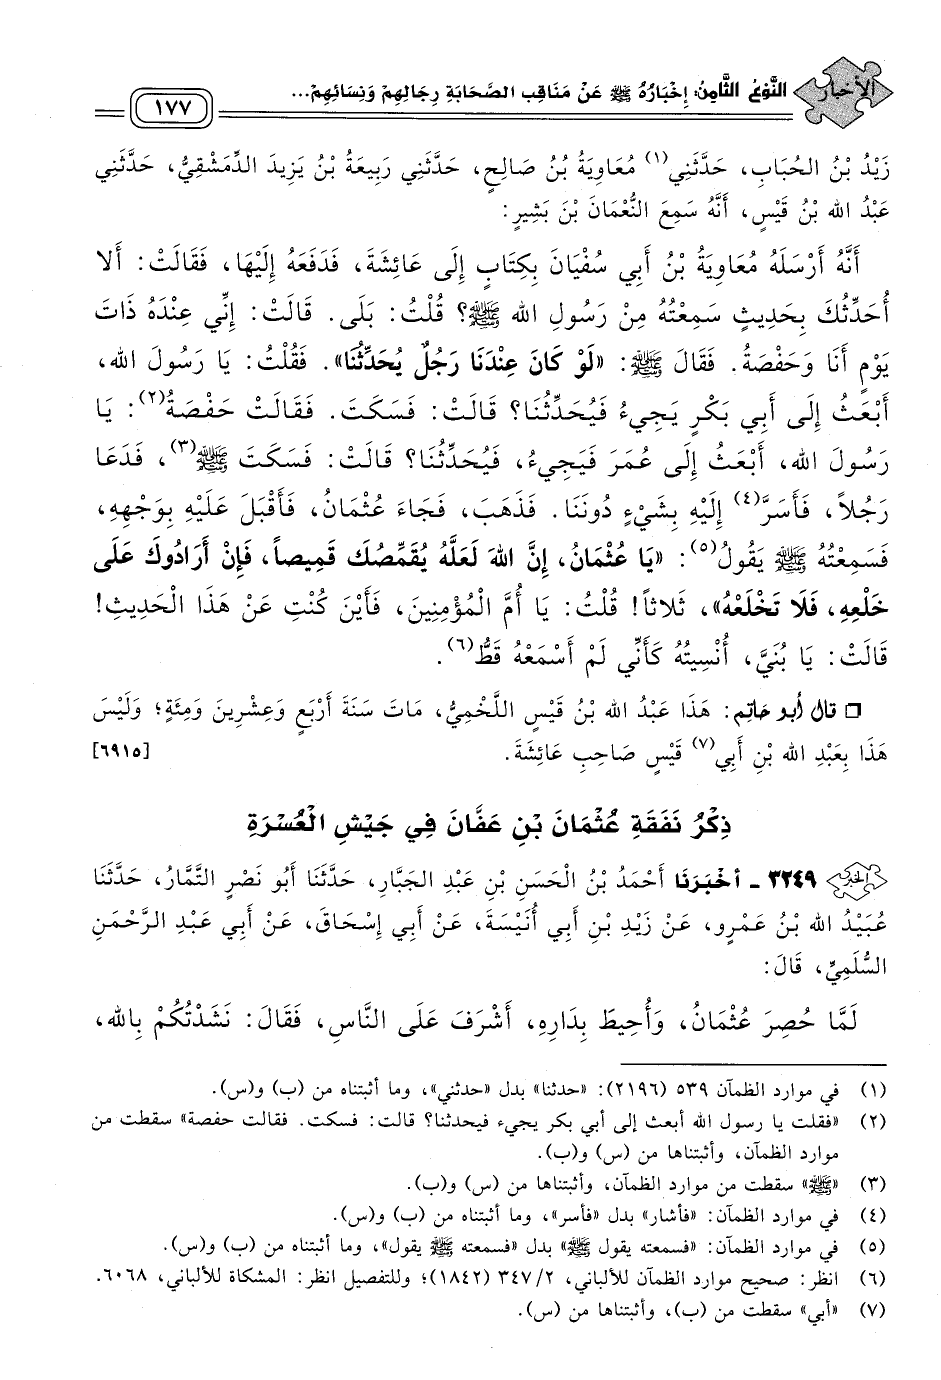 الأخبار
النَّوْعُ الثَّامِنُ: إِخْبَارُهُ ﷺ عَنْ مَنَاقِبِ الصَّحَابَةِ رِجَالِهِمْ وَنِسَائِهِمْ...
١٧٧
زَيْدُ بْنُ الحُبَابِ، حَدَّثَنِي(١) مُعَاوِيَةُ بْنُ صَالِحٍ، حَدَّثَنِي رَبِيعَةُ بْنُ يَزِيدَ الدِّمَشْقِيُّ، حَدَّثَنِي
عَبْدُ الله بْنُ قَيْسٍ، أَنَّهُ سَمِعَ النُّعْمَانَ بْنَ بَشِيرٍ:
أَنَّهُ أَرْسَلَهُ مُعَاوِيَةُ بْنُ أَبِي سُفْيَانَ بِكِتَابٍ إِلَى عَائِشَةَ، فَدَفَعَهُ إِلَيْهَا، فَقَالَتْ: أَلا
أُحَدِّثُكَ بِحَدِيثٍ سَمِعْتُهُ مِنْ رَسُولِ الله ﷺ؟ قُلْتُ: بَلَى. قَالَتْ: إِنِّي عِنْدَهُ ذَاتَ
يَوْمٍ أَنَا وَحَفْصَةُ. فَقَالَ ﷺ: «لَوْ كَانَ عِنْدَنَا رَجُلٌ يُحَدِّثُنَا». فَقُلْتُ: يا رَسُولَ الله،
أَبْعَثُ إِلَى أَبِي بَكْرٍ يَجِيءُ فَيُحَدِّثُنَا؟ قَالَتْ: فَسَكَتَ. فَقَالَتْ حَفْصَةُ(٢): يَا
رَسُولَ الله، أَبْعَثُ إِلَى عُمَرَ فَيَجِيءُ، فَيُحَدِّثُنَا؟ قَالَتْ: فَسَكَتَ ﷺ(٣)، فَدَعَا
رَجُلاً، فَأَسَرَّ(٤) إِلَيْهِ بِشَيْءٍ دُونَنَا. فَذَهَبَ، فَجَاءَ عُثْمَانُ، فَأَقْبَلَ عَلَيْهِ بِوَجْهِهِ،
فَسَمِعْتُهُ ﷺ يَقُولُ(٥): «يَا عُثْمَانُ، إِنَّ اللهَ لَعَلَّهُ يُقَمِّصُكَ قَمِيصاً، فَإِنْ أَرَادُوكَ عَلَى
خَلْعِهِ، فَلَا تَخْلَعْهُ»، ثَلاثاً! قُلْتُ: يَا أُمَّ الْمُؤْمِنِينَ، فَأَيْنَ كُنْتِ عَنْ هَذَا الْحَدِيثِ!
قَالَتْ: يَا بُنَيَّ، أُنْسِيتُهُ كَأَنِّي لَمْ أَسْمَعْهُ قَطُّ(٦).
❒ قال أبو حاتِم: هَذَا عَبْدُ الله بْنُ قَيْسٍ اللَّخْمِيُّ، مَاتَ سَنَةَ أَرْبَعٍ وَعِشْرِينَ وَمِئَةٍ؛ وَلَيْسَ
هَذَا بِعَبْدِ الله بْنِ أَبِي(٧) قَيْسٍ صَاحِبِ عَائِشَةَ. [٦٩١٥]
ذِكْرُ نَفَقَةِ عُثْمَانَ بْنِ عَفَّانَ فِي جَيْشِ الْعُسْرَةِ
الخبر ٣٢٤٩ - أَخْبَرَنَا أَحْمَدُ بْنُ الْحَسَنِ بْنِ عَبْدِ الجَبَّارِ، حَدَّثَنَا أَبُو نَصْرٍ التَّمَّارُ، حَدَّثَنَا
عُبَيْدُ الله بْنُ عَمْرٍو، عَنْ زَيْدِ بْنِ أَبِي أُنَيْسَةَ، عَنْ أَبِي إِسْحَاقَ، عَنْ أَبِي عَبْدِ الرَّحْمَنِ
السُّلَمِيِّ، قَالَ:
لَمَّا حُصِرَ عُثْمَانُ، وَأُحِيطَ بِدَارِهِ، أَشْرَفَ عَلَى النَّاسِ، فَقَالَ: نَشَدْتُكُمْ بِالله،
(١) في موارد الظمآن ٥٣٩ (٢١٩٦): «حدثنا» بدل «حدثني»، وما أثبتناه من (ب) و(س).
(٢) «فقلت يا رسول الله أبعث إلى أبي بكر يجيء فيحدثنا؟ قالت: فسكت. فقالت حفصة» سقطت من
موارد الظمآن، وأثبتناها من (س) و(ب).
(٣) «ﷺ» سقطت من موارد الظمآن، وأثبتناها من (س) و(ب).
(٤) في موارد الظمآن: «فأشار» بدل «فأسر»، وما أثبتناه من (ب) و(س).
(٥) في موارد الظمآن: «فسمعته يقول ﷺ» بدل «فسمعته ﷺ يقول»، وما أثبتناه من (ب) و(س).
(٦) انظر: صحيح موارد الظمآن للألباني، ٢/ ٣٤٧ (١٨٤٢)؛ وللتفصيل انظر: المشكاة للألباني، ٦٠٦٨.
(٧) «أبي» سقطت من (ب)، وأثبتناها من (س).